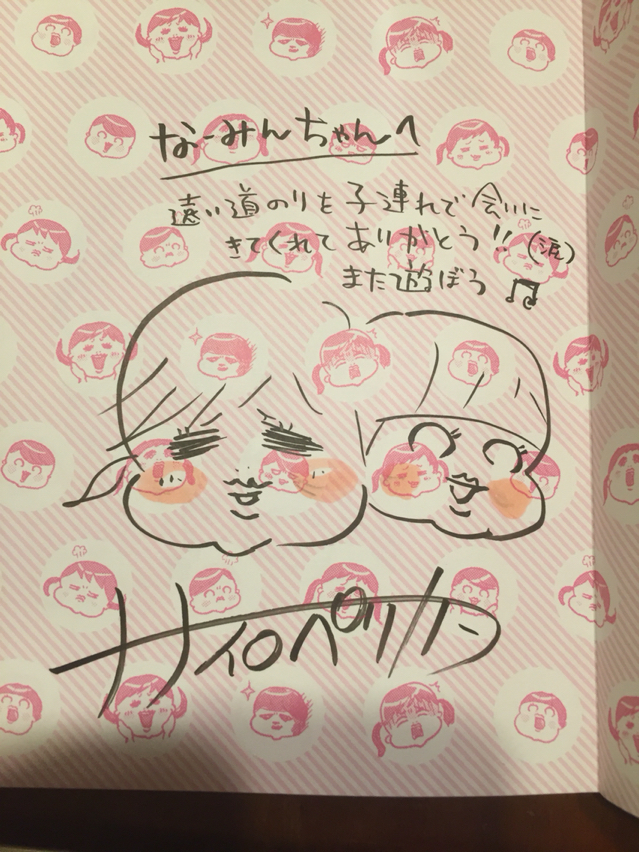 なーみんちゃんへ
遠い道のりを子連れで会いに
きてくれてありがとう!!(涙)
また遊ぼう♫
ナイロペリカン